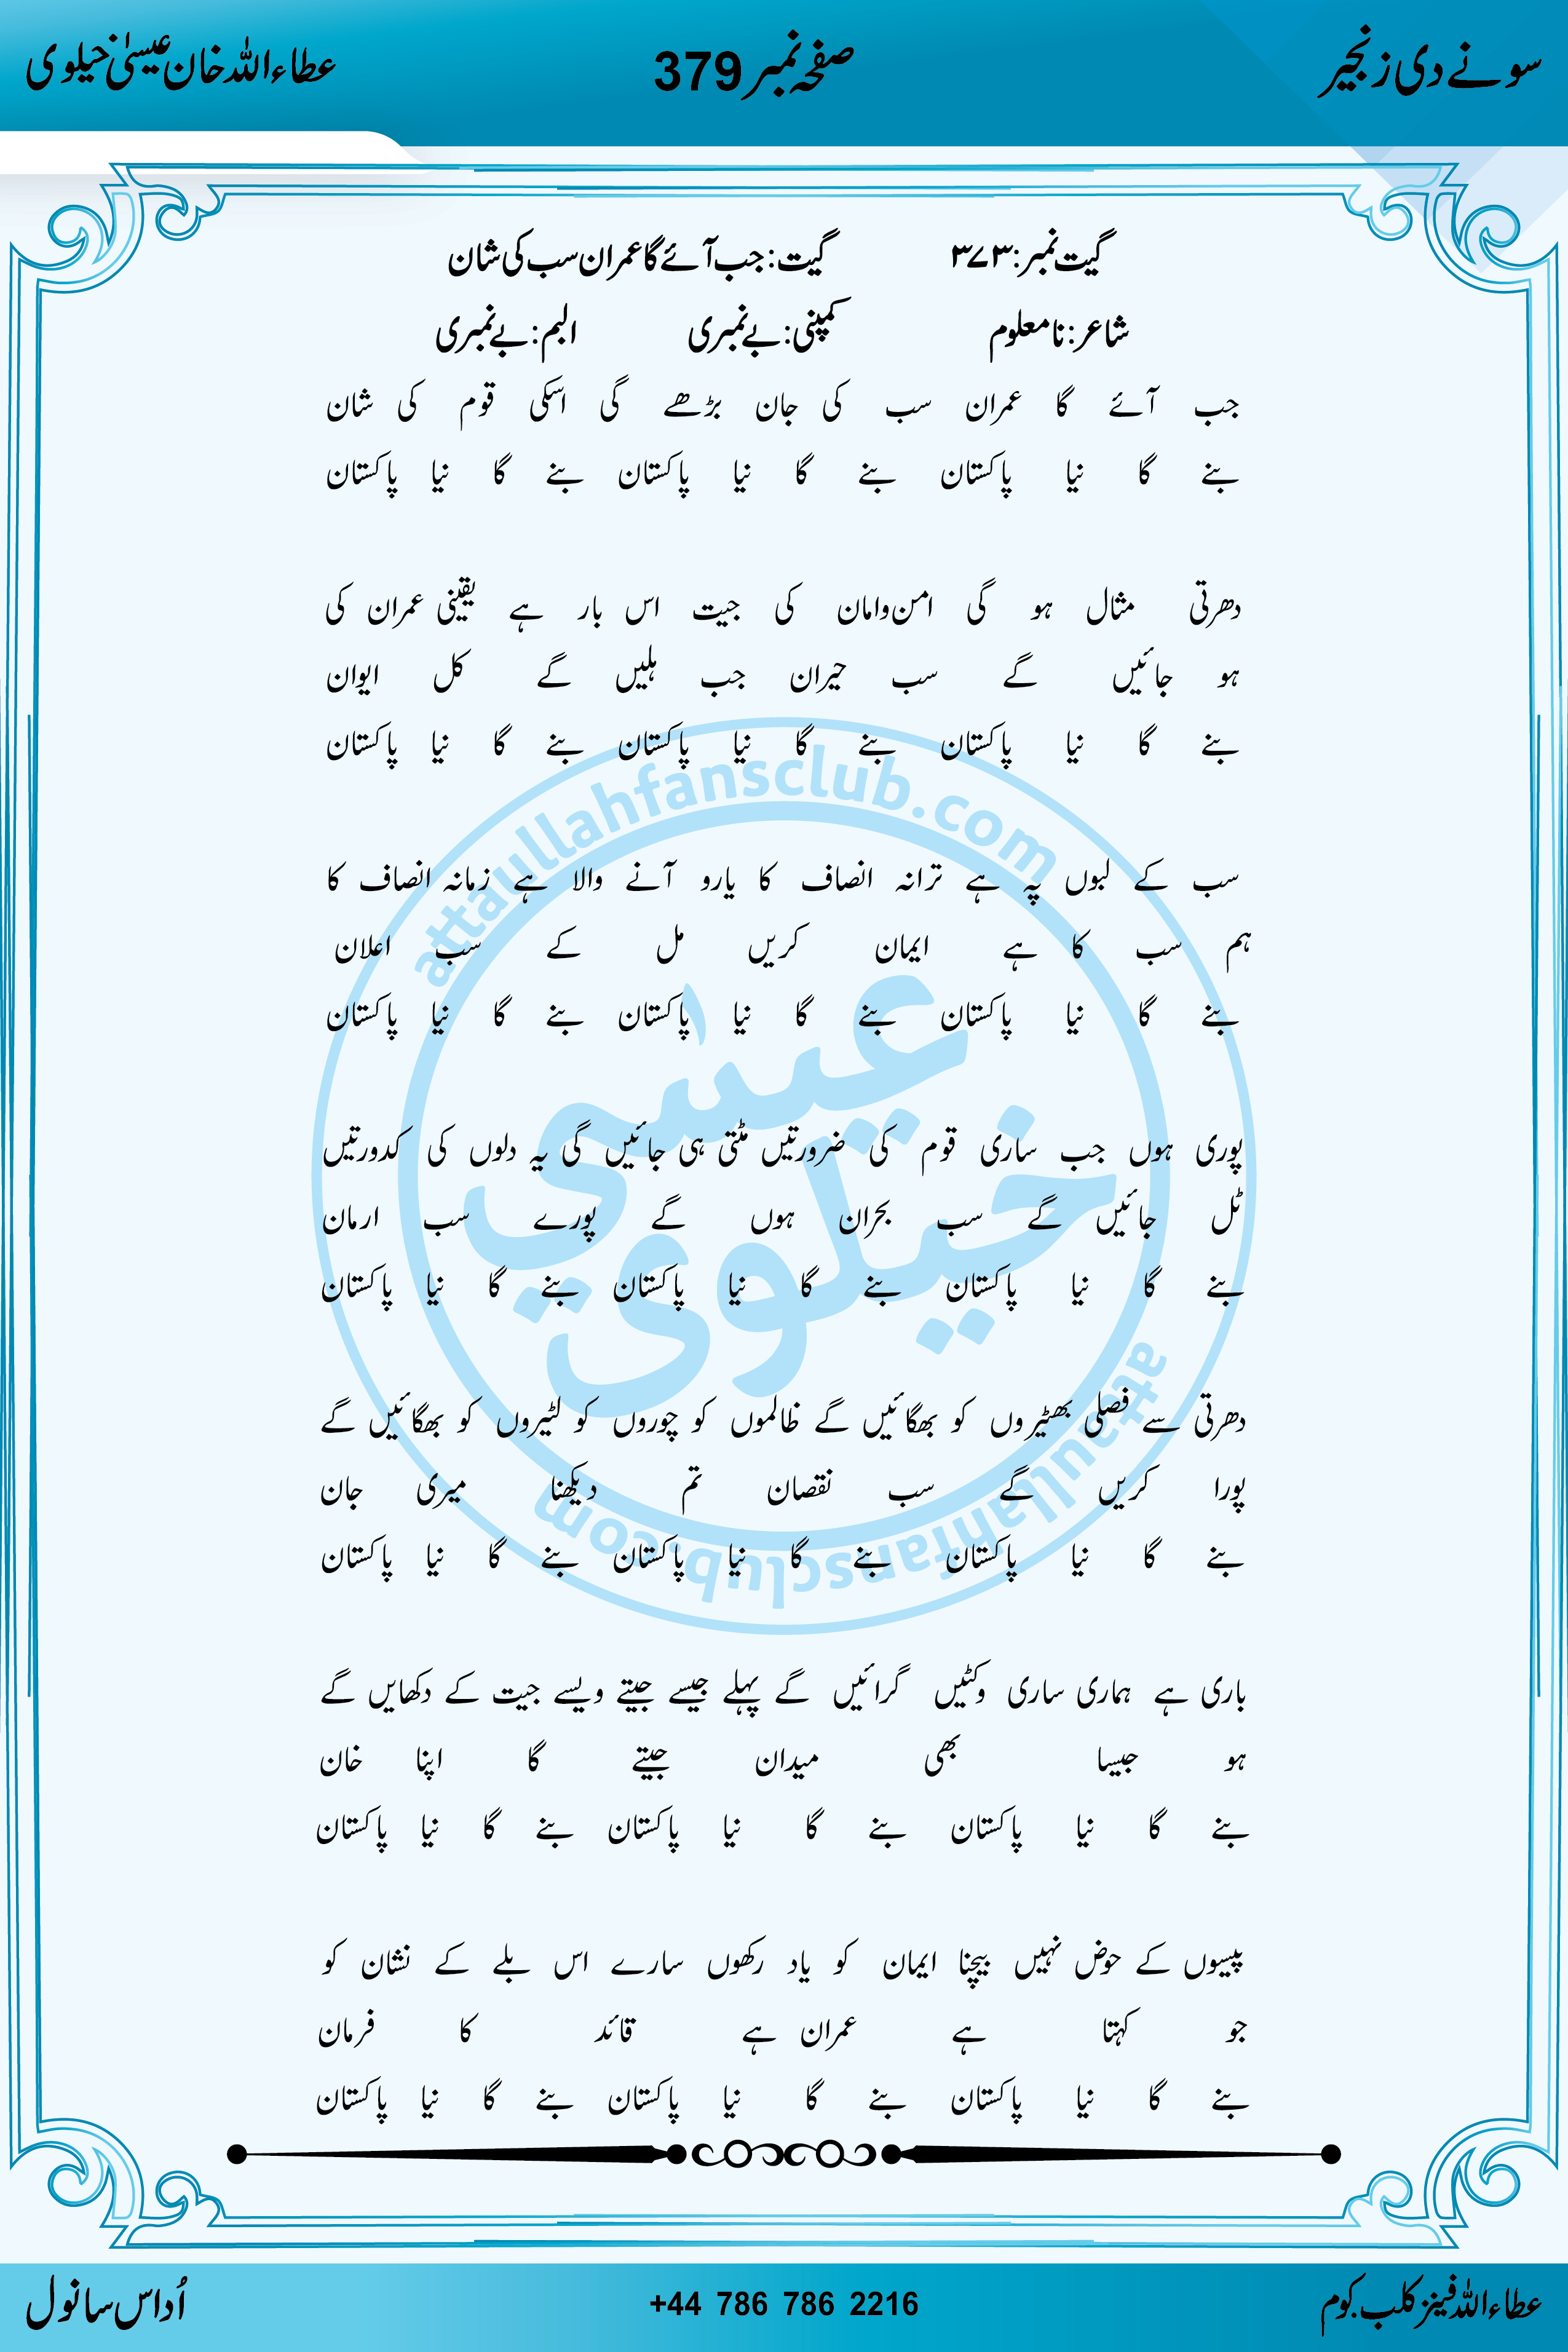 سونے دی زنجیر صفحہ نمبر 379 عطاءاللہ خان عیسیٰ خیلوی
گیت نمبر: ۳۷۳ گیت: جب آئے گا عمران سب کی شان
شاعر: نامعلوم کمپنی: بے نمبری البم: بے نمبری
جب آئے گا عمران سب کی جان بڑھے گی اسکی قوم کی شان
بنے گا نیا پاکستان بنے گا نیا پاکستان بنے گا نیا پاکستان
دھرتی مثال ہو گی امن وامان کی جیت اس بار ہے یقینی عمران کی
ہو جائیں گے سب حیران جب ہلیں گے کل ایوان
بنے گا نیا پاکستان بنے گا نیا پاکستان بنے گا نیا پاکستان
سب کے لبوں پہ ہے ترانہ انصاف کا یارو آنے والا ہے زمانہ انصاف کا
ہم سب کا ہے ایمان کریں مل کے سب اعلان
بنے گا نیا پاکستان بنے گا نیا پاکستان بنے گا نیا پاکستان
پوری ہوں جب ساری قوم کی ضرورتیں مٹتی ہی جائیں گی یہ دلوں کی کدورتیں
ٹل جائیں گے سب بحران ہوں گے پورے سب ارمان
بنے گا نیا پاکستان بنے گا نیا پاکستان بنے گا نیا پاکستان
دھرتی سے فصلی بھٹیروں کو بھگائیں گے ظالموں کو چوروں کو لٹیروں کو بھگائیں گے
پورا کریں گے سب نقصان تم دیکھنا میری جان
بنے گا نیا پاکستان بنے گا نیا پاکستان بنے گا نیا پاکستان
باری ہے ہماری ساری وکٹیں گرائیں گے پہلے جیسے جیتے ویسے جیت کے دکھایں گے
ہو جیسا بھی میدان جیتے گا اپنا خان
بنے گا نیا پاکستان بنے گا نیا پاکستان بنے گا نیا پاکستان
پیسوں کے حوض نہیں بیچنا ایمان کو یاد رکھوں سارے اس بلے کے نشان کو
جو کہتا ہے عمران ہے قائد کا فرمان
بنے گا نیا پاکستان بنے گا نیا پاکستان بنے گا نیا پاکستان
attaullahfansclub.com
عیسٰی
خیلوی
attaullahfansclub.com
عطاءاللہ فینز کلب.کوم +44 786 786 2216 اُداس سانول